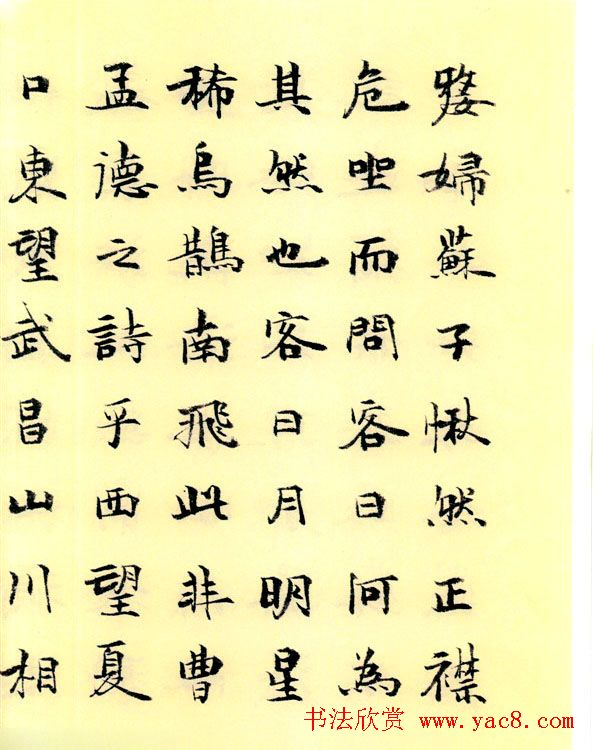 嫠婦蘇子愀然正襟
危坐而問客曰何為
其然也客曰月明星
稀烏鵲南飛此非曹
孟德之詩乎西望夏
口東望武昌山川相
书法欣赏 www.yac8.com